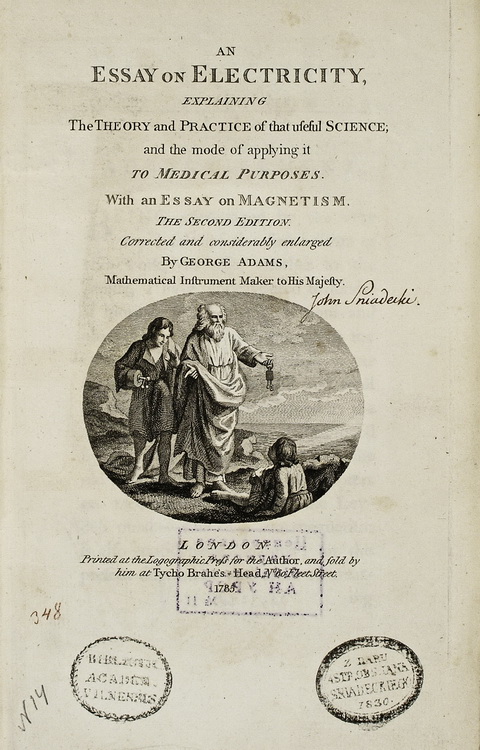 AN
ESSAY ON ELECTRICITY,
EXPLAINING
The THEORY and PRACTICE of that uſeful SCIENCE;
and the mode of applying it
TO MEDICAL PURPOSES.
With an ESSAY on MAGNETISM.
THE SECOND EDITION.
Corrected and conſiderably enlarged
By GEORGE ADAMS,
Mathematical Inſtrument Maker to His Majeſty.
John Sniadecki.
LONDON
Printed at the Logographic Preſs for the Author, and ſold by
him at Tycho Brahe's-Head, Nº 60, Fleet Street.
1785.
348
N 14
BIBLIOTH
ACADEM.
VILNENSIS
Z DARU
ASTR. OBS. JANA
SNIADECKIEGO
1830.